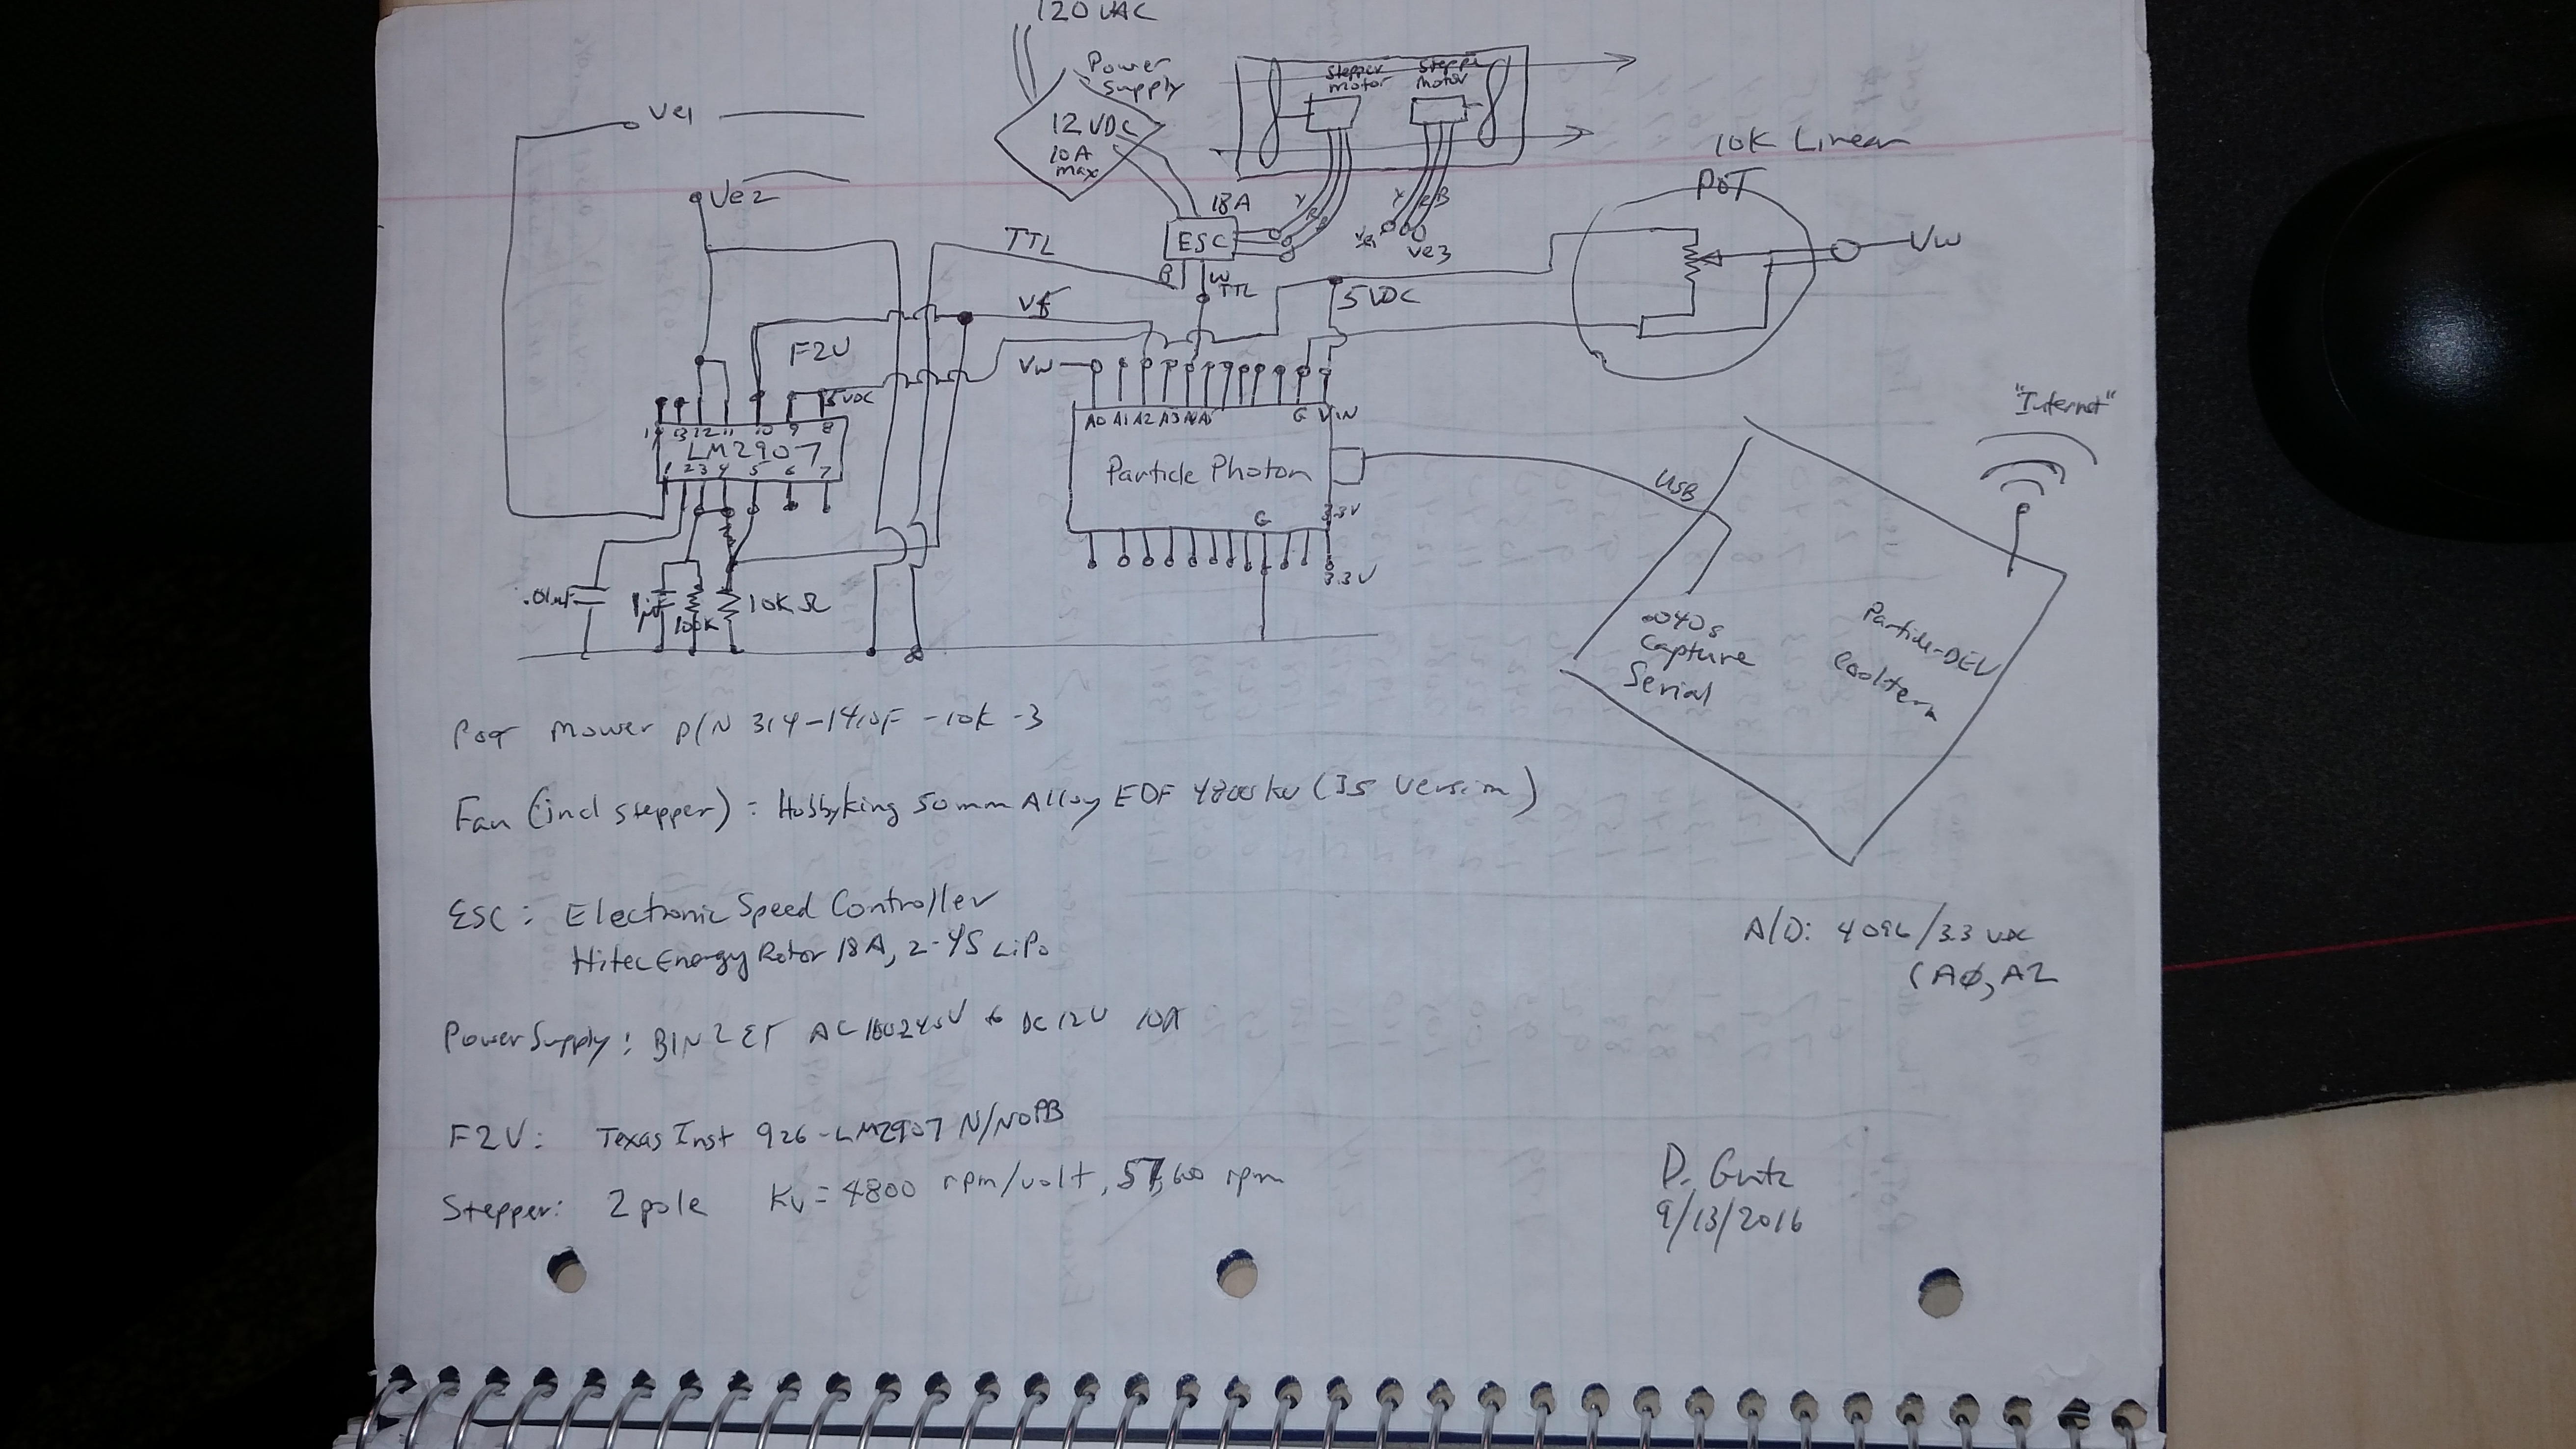 120 VAC
Power
Supply
12 VDC
10A
max
Stepper
motor
Stepper
Motor
Ve1
Ve2
10K Linear
POT
Vw
18A
ESC
Y
R
B
Y
R
B
Ve1
Ve3
TTL
B
W
TTL
5VDC
Vf
F2V
Vw
5VDC
14 13 12 11 10 9 8
LM2907
1 2 3 4 5 6 7
A0 A1 A2 A3 A4 A5 G VIN
Particle Photon
G 3.3V
3.3V
USB
"Internet"
.01uF
1uF
100K
10KΩ
.040s
Capture
Serial
Particle-DEV
Coolterm
POT Mower P/N 314-1410F-10K-3
Fan (incl stepper) : Hobbyking 50mm Alloy EDF 4800kv (3S Version)
ESC : Electronic Speed Controller
Hitec Energy Rotor 18A, 2-4S LiPo
A/D: 4096/3.3 VDC
(AØ, A2
Power Supply : BINZET AC 100240V to DC 12V 10A
F2V: Texas Inst 926-LM2907 N/NOPB
Stepper: 2 pole Kv = 4800 rpm/volt, 57,600 rpm
D. Gutz
9/13/2016